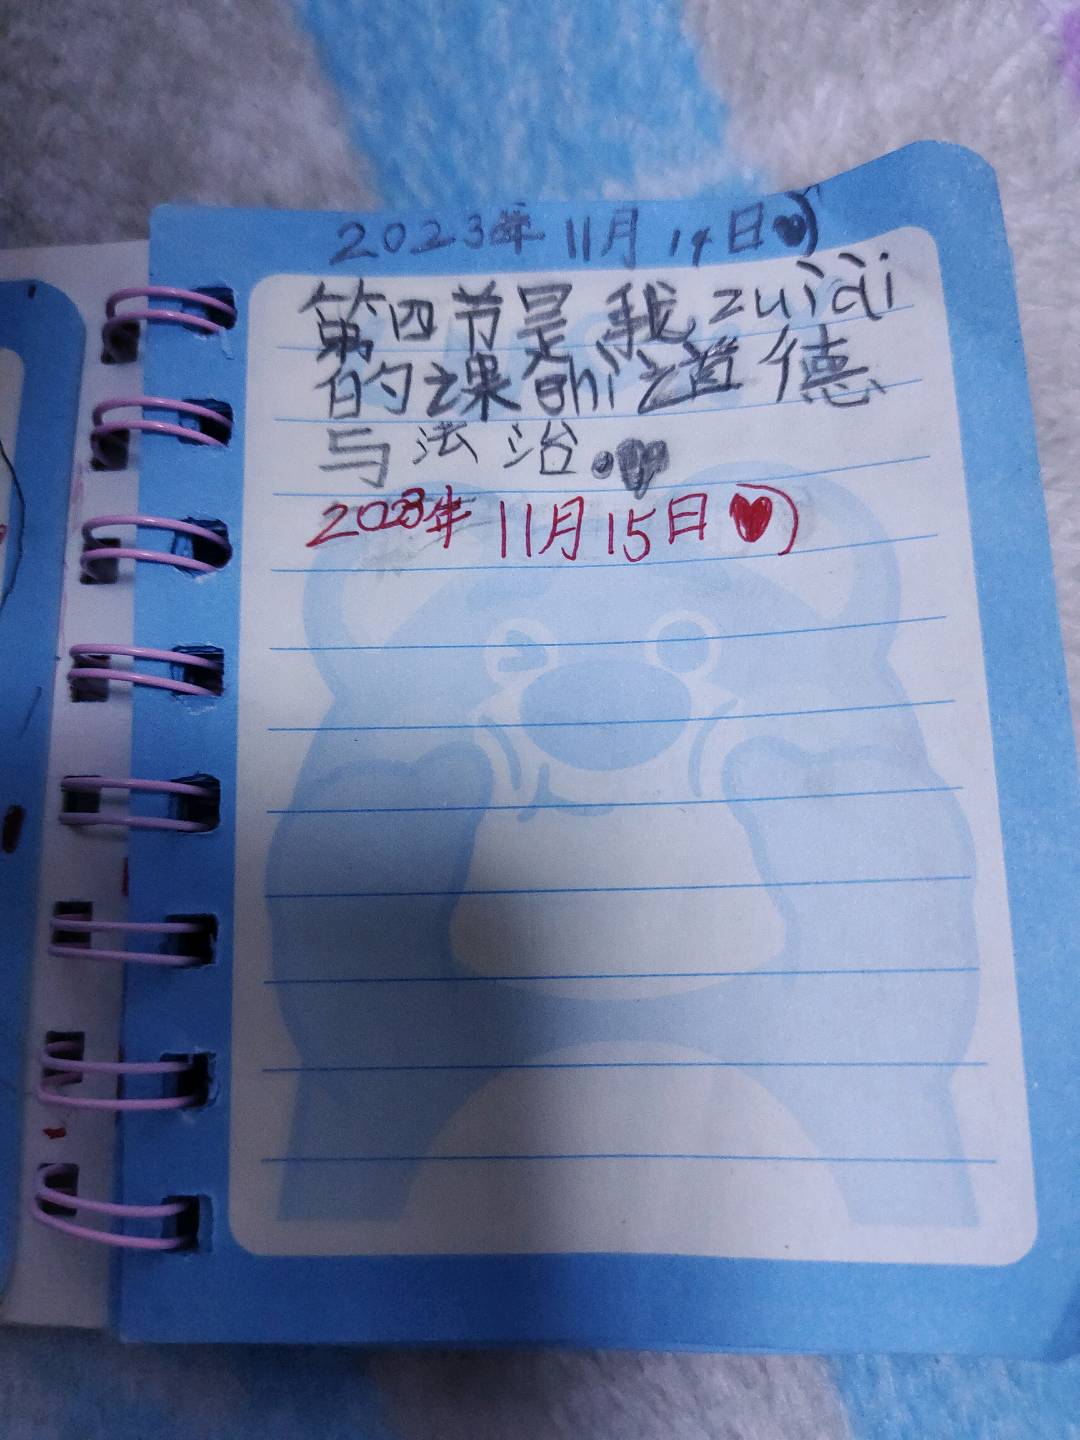 2023年11月14日♥)
第四节是我zuìài
的之课shì之道德
与法治.♥
2023年11月15日♥)